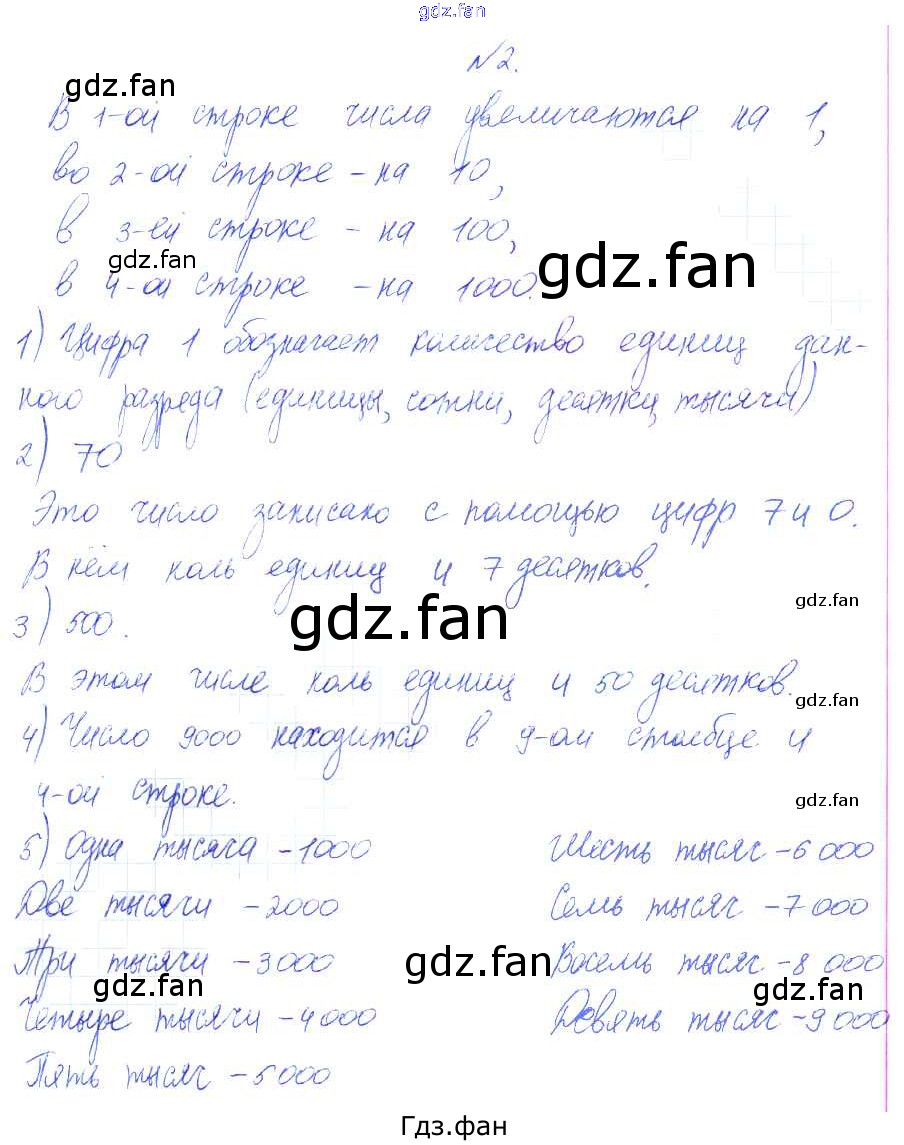 gdz.fan
№2.
gdz.fan
В 1-ой строке числа увеличаются на 1,
во 2-ой строке - на 10,
в 3-ей строке - на 100,
gdz.fan
gdz.fan
в 4-ой строке - на 1000.
1) Цифра 1 обозначает количество единиц дан-
ного разряда (единицы, сотни, десятки, тысячи)
2) 70
Это число записано с помощью цифр 7 и 0.
В нём ноль единиц и 7 десятков.
gdz.fan
gdz.fan
3) 500.
В этом числе ноль единиц и 50 десятков.
gdz.fan
4) Число 9000 находится в 9-ом столбце и
4-ой строке.
gdz.fan
5) Одна тысяча - 1000 Шесть тысяч - 6 000
Две тысячи - 2000 Семь тысяч - 7 000
Три тысячи - 3 000 gdz.fan Восемь тысяч - 8 000
gdz.fan gdz.fan
Четыре тысячи - 4 000 Девять тысяч - 9 000
Пять тысяч - 5 000
Гдз.фан